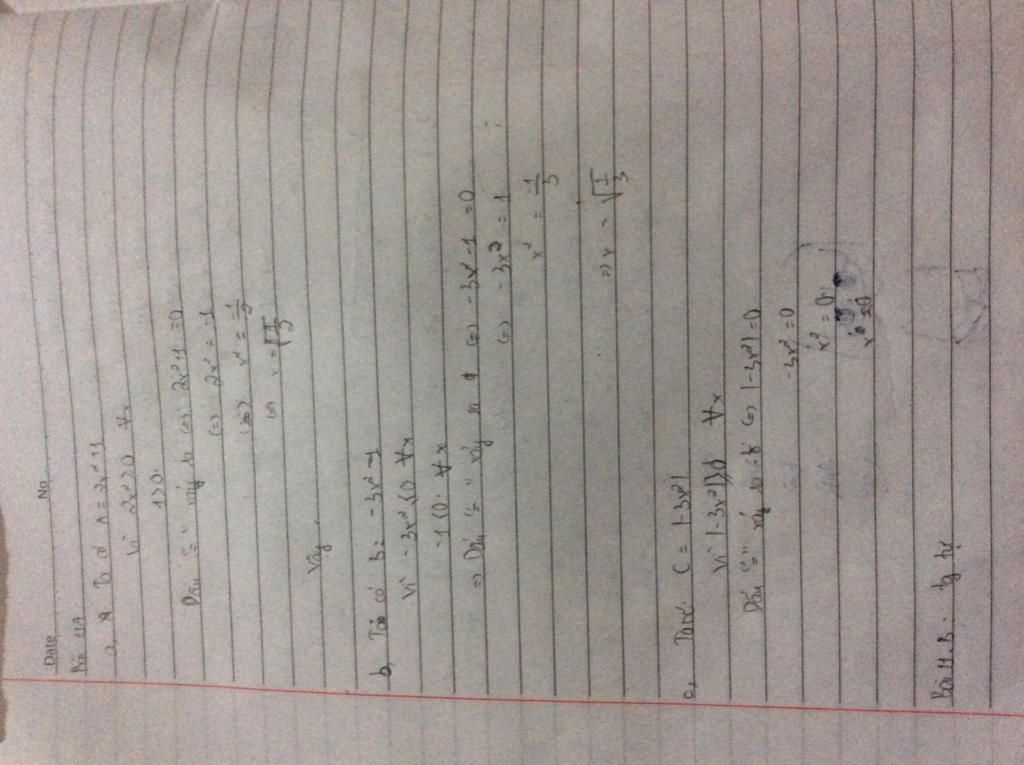 Date No
Bài 11A
a, Ta có A = 2x² + 1
Vì 2x² ≥ 0 ∀x
1 > 0.
Dấu "=" xảy ra (=) 2x² + 1 = 0
(=) 2x² = -1
(=) x² =
(=) x =
Vậy
b, Ta có B = -3x² - 1
Vì -3x² ≤ 0 ∀x
-1 < 0. ∀x
=> Dấu "=" xảy ra (=) -3x² - 1 = 0
(=) -3x² = 1
x² = -1/3
=> x = √1/3
c, Ta có C = |-3x²|
Vì |-3x²| ≥ 0 ∀x
Dấu "=" xảy ra (=) |-3x²| = 0
-3x² = 0
x² = 0
Bài 11.B. tg tự